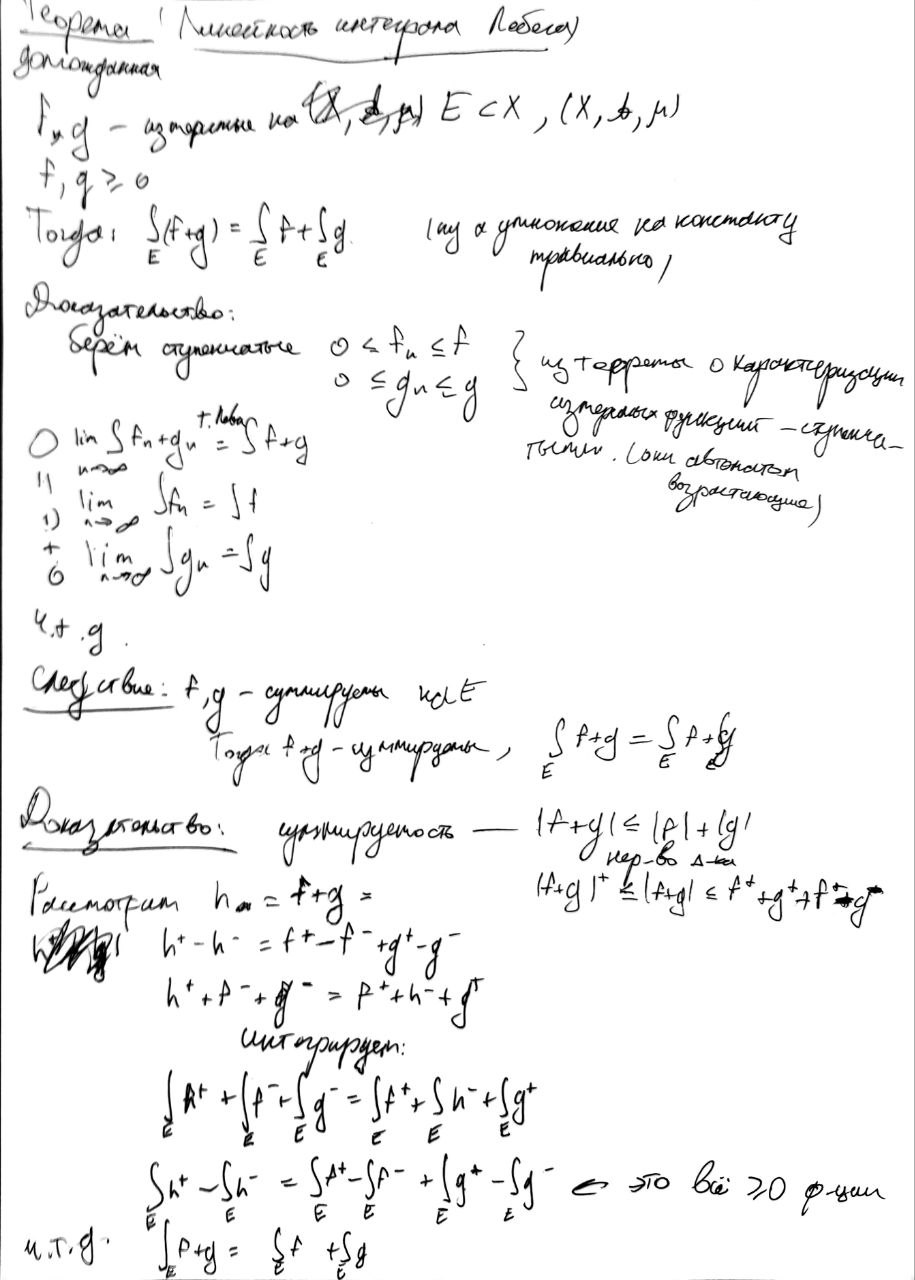 Теорема (Линейность интеграла Лебега)
долгожданная
f, g – измеримые на E ⊂ X, (X, 𝒜, μ)
f, g ≥ 0
Тогда: ∫_E (f+g) = ∫_E f + ∫_E g (ну а умножение на константу
тривиально)
Доказательство:
берём ступенчатые 0 ≤ f_n ≤ f
0 ≤ g_n ≤ g } из теоремы о характеризации
измеримых функций – ступенча-
тыми. (они автоматом
возрастающие)
lim_{n→∞} ∫ f_n + g_n = ∫ f+g
lim_{n→∞} ∫ f_n = ∫ f
+
lim_{n→∞} ∫ g_n = ∫ g
ч.т.д.
Следствие: f, g – суммируемы на E
Тогда f+g – суммируемы, ∫_E f+g = ∫_E f + ∫_E g
Доказательство: суммируемость — |f+g| ≤ |f| + |g|
нер-во Δ-ка
Рассмотрим h = f+g =
|f+g|⁺ ≤ |f+g| ≤ f⁺ + g⁺ + f⁺ + g⁻
h⁺ – h⁻ = f⁺ – f⁻ + g⁺ – g⁻
h⁺ + f⁻ + g⁻ = f⁺ + h⁻ + g⁺
Интегрируем:
∫_E h⁺ + ∫_E f⁻ + ∫_E g⁻ = ∫_E f⁺ + ∫_E h⁻ + ∫_E g⁺
∫_E h⁺ – ∫_E h⁻ = ∫_E f⁺ – ∫_E f⁻ + ∫_E g⁺ – ∫_E g⁻ ← это всё ≥0 ф-ции
ч.т.д. ∫_E f+g = ∫_E f + ∫_E g